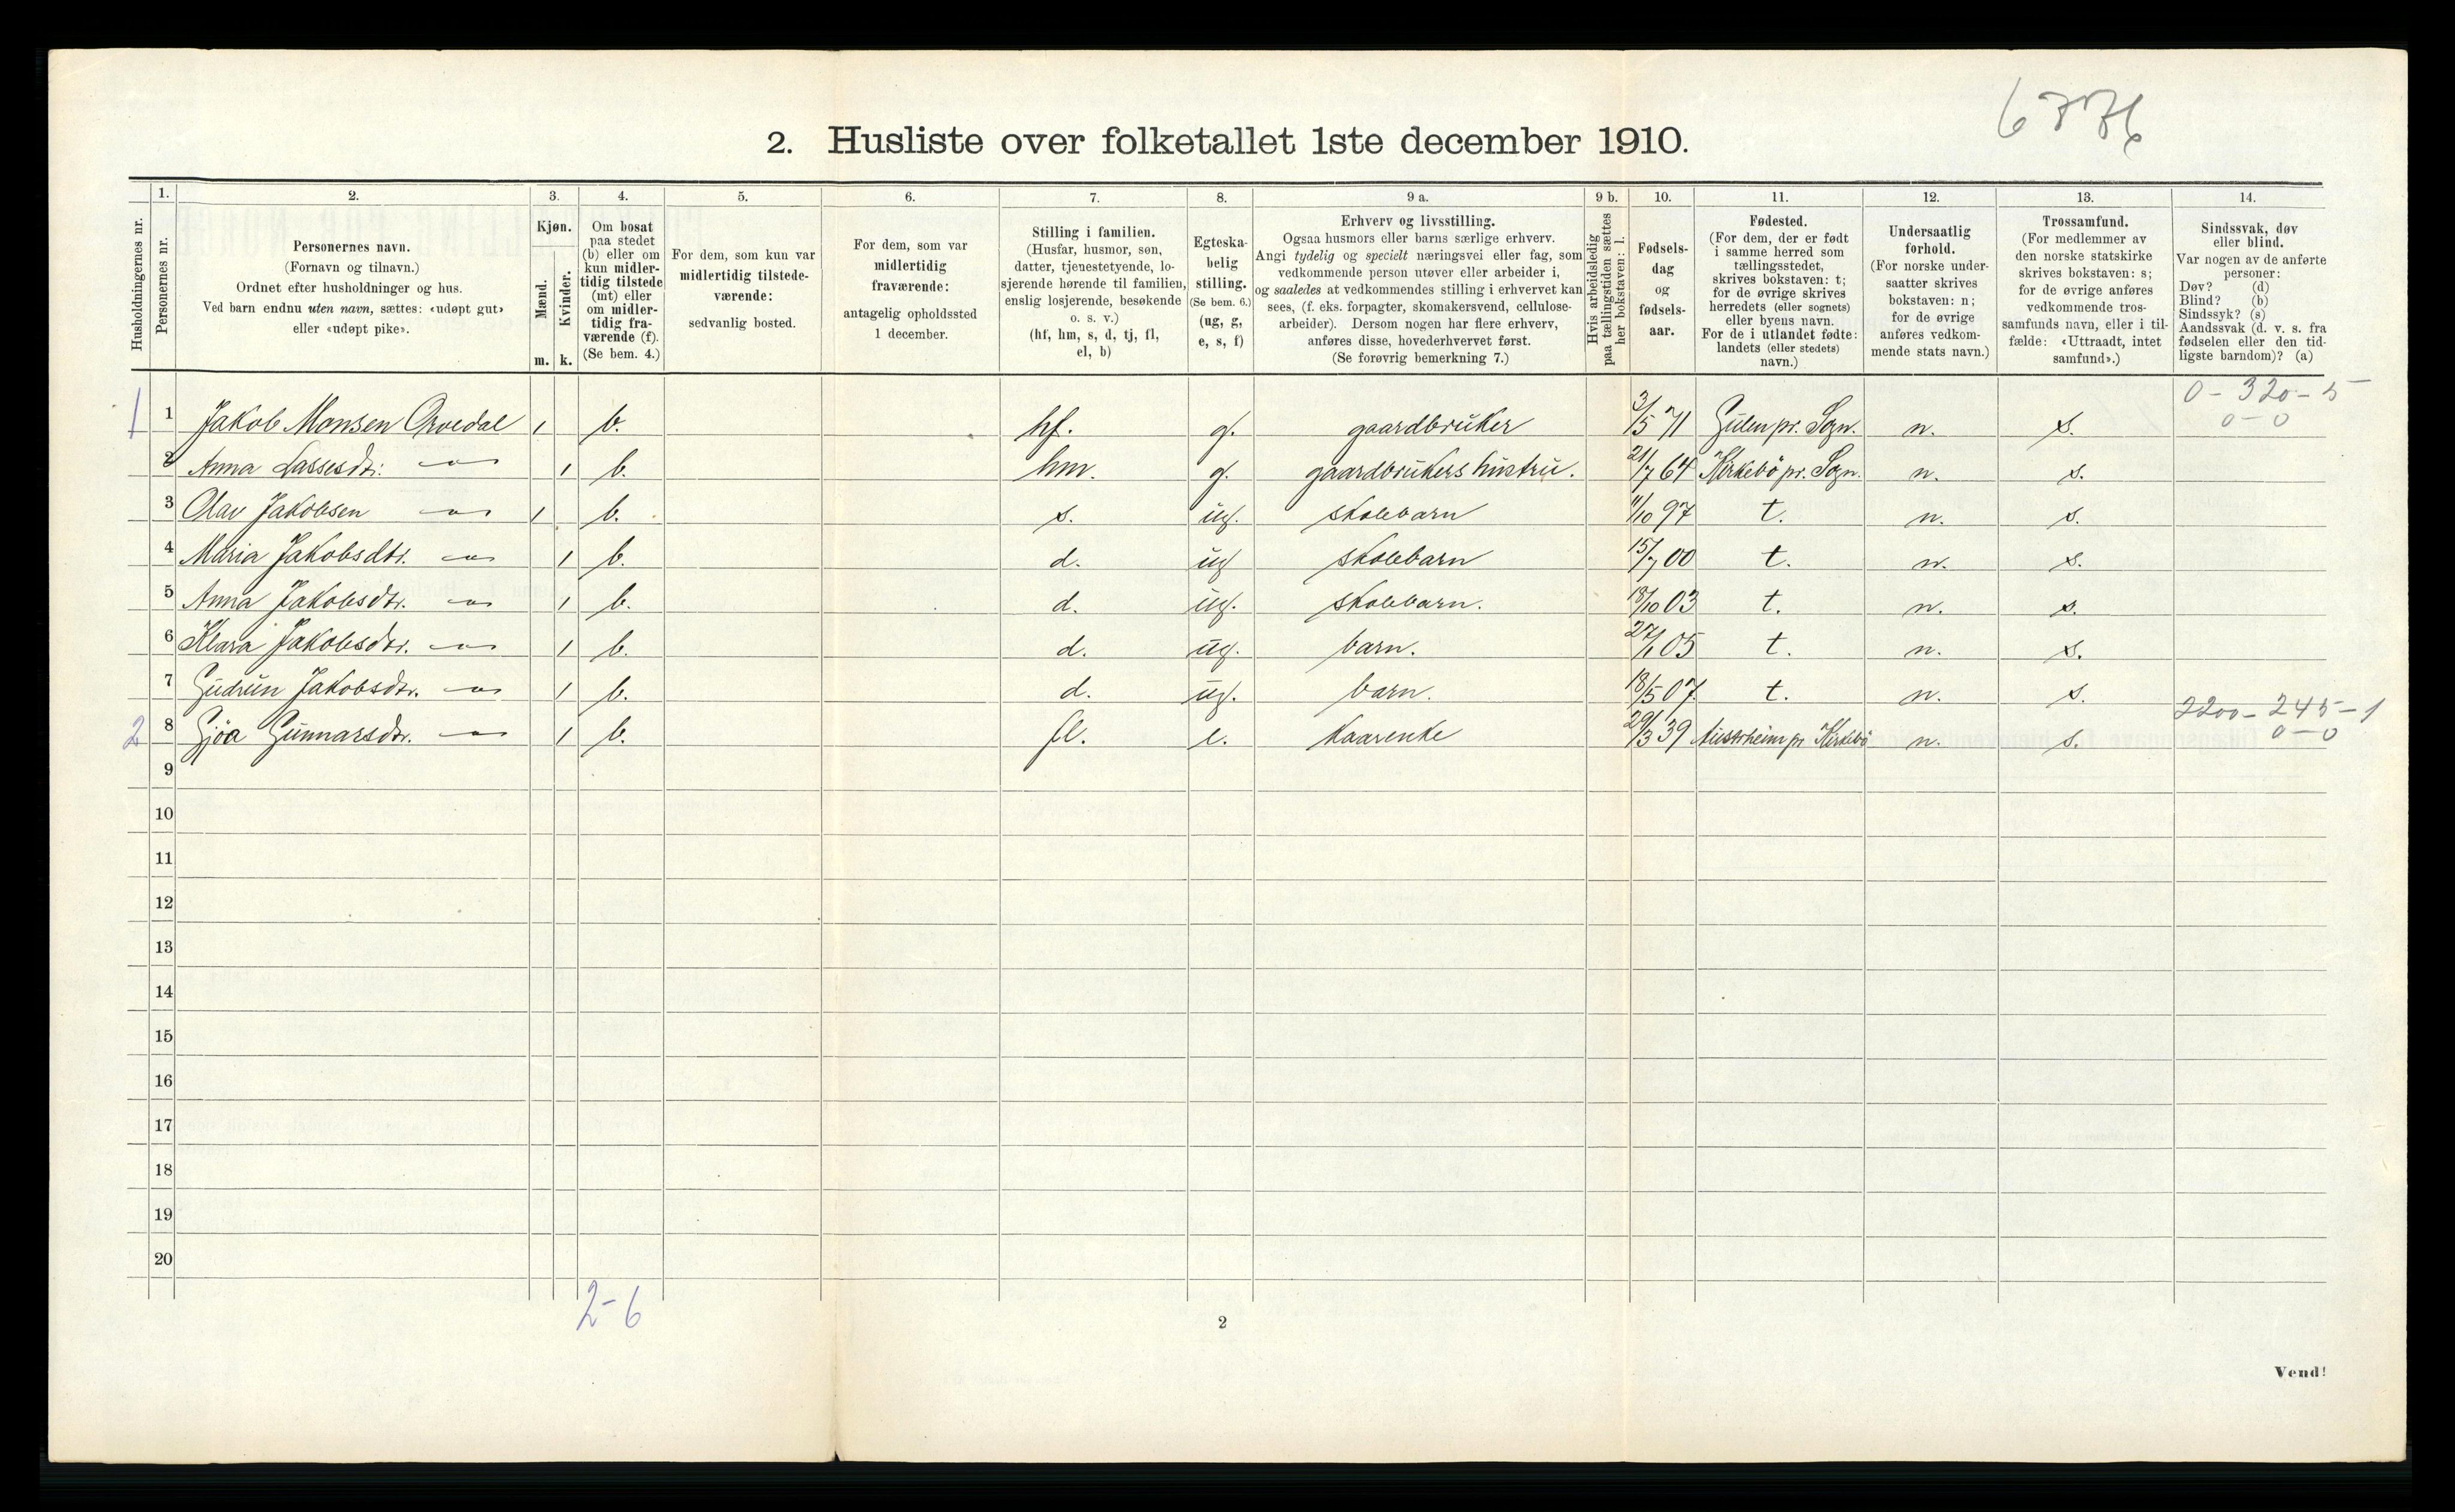 6776
2. Husliste over folketallet 1ste december 1910.
Husholdningernes nr.
1.
Personernes nr.
2.
Personernes navn.
(Fornavn og tilnavn.)
Ordnet efter husholdninger og hus.
Ved barn endnu uten navn, sættes: «udøpt gut»
eller «udøpt pike».
3.
Kjøn.
Mænd.
Kvinder.
m. k.
4.
Om bosat
paa stedet
(b) eller om
kun midler-
tidig tilstede
(mt) eller
om midler-
tidig fra-
værende (f).
(Se bem. 4.)
5.
For dem, som kun var
midlertidig tilstede-
værende:
sedvanlig bosted.
6.
For dem, som var
midlertidig
fraværende:
antagelig opholdssted
1 december.
7.
Stilling i familien.
(Husfar, husmor, søn,
datter, tjenestetyende, lo-
sjerende hørende til familien,
enslig losjerende, besøkende
o. s. v.)
(hf, hm, s, d, tj, fl,
el, b)
8.
Egteska-
belig
stilling.
(Se bem. 6.)
(ug, g,
e, s, f)
9 a.
Erhverv og livsstilling.
Ogsaa husmors eller barns særlige erhverv.
Angi tydelig og specielt næringsvei eller fag, som
vedkommende person utøver eller arbeider i,
og saaledes at vedkommendes stilling i erhvervet kan
sees, (f. eks. forpagter, skomakersvend, cellulose-
arbeider). Dersom nogen har flere erhverv,
anføres disse, hovederhvervet først.
(Se forøvrig bemerkning 7.)
9 b.
Hvis arbeidsledig
paa tællingstiden sættes
her bokstaven: l.
10.
Fødsels-
dag
og
fødsels-
aar.
11.
Fødested.
(For dem, der er født
i samme herred som
tællingsstedet,
skrives bokstaven: t;
for de øvrige skrives
herredets (eller sognets)
eller byens navn.
For de i utlandet fødte:
landets (eller stedets)
navn.)
12.
Undersaatlig
forhold.
(For norske under-
saatter skrives
bokstaven: n;
for de øvrige
anføres vedkom-
mende stats navn.)
13.
Trossamfund.
(For medlemmer av
den norske statskirke
skrives bokstaven: s;
for de øvrige anføres
vedkommende tros-
samfunds navn, eller i til-
fælde: «Uttraadt, intet
samfund».)
14.
Sindssvak, døv
eller blind.
Var nogen av de anførte
personer:
Døv? (d)
Blind? (b)
Sindssyk? (s)
Aandssvak (d. v. s. fra
fødselen eller den tid-
ligste barndom)? (a)
0 - 320 - 5
0 - 0
1 1 Jakob Monsen Orvedal 1 b. hf. g. gaardbruker 3/5 71 Gulen pr. Sogn. n. s.
2 Anna Lassesdtr: —"— 1 b. hm. g. gaardbrukers hustru. 21/7 64 Kirkebö pr. Sogn. n. s.
3 Olav Jakobsen —"— 1 b. s. ug. skolebarn 11/10 97 t. n. s.
4 Maria Jakobsdtr. —"— 1 b. d. ug skolebarn 15/7 00 t. n. s.
5 Anna Jakobsdtr. —"— 1 b. d. ug. skolebarn. 18/10 03 t. n. s.
6 Klara Jakobsdtr. —"— 1 b. d. ug. barn. 27/1 05 t. n. s.
7 Gudrun Jakobsdtr. —"— 1 b. d. ug. barn. 18/5 07. t. n. s.
2 8 Gjöa Gunnarsdtr. —"— 1 b. fl. e. Kaarenke 29/3 39 Austrheim pr Kirkebö n. s. 2200 - 245 - 1
0 - 0
9
10
11
12
13
14
15
16
17
18
19
20
2 - 6
2
Vend!